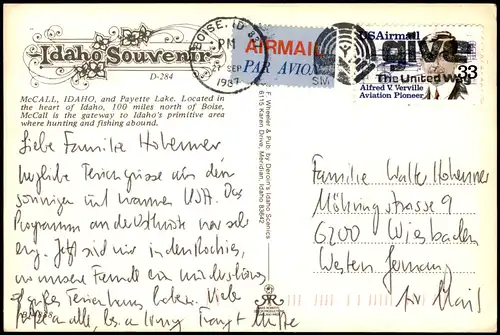 Idaho Souvenir
D-284
McCALL, IDAHO, and Payette Lake. Located in
the heart of Idaho, 100 miles north of Boise,
McCall is the gateway to Idaho's primitive area
where hunting and fishing abound.
BOISE, ID 837
PM
27 SEP
1987
AIRMAIL
PAR AVION
USAirmail
give
The United Way
33
Alfred V. Verville
Aviation Pioneer
F. Wheeler & Pub. by Deroin's Idaho Scenics
6115 Karen Drive, Meridian, Idaho 83642
Liebe Familie
herzliche Feriengrüsse aus den
sonnigen und warmen USA. Das
Programm an der Ostküste war sehr
eng. Jetzt sind wir in den Rockies,
wo unsere Freunde ein wunderschönes
großes Ferienhaus haben. Viele
alle,
Familie Walter
Möhringstrasse 9
6200 Wiesbaden
Western Germany
Air Mail